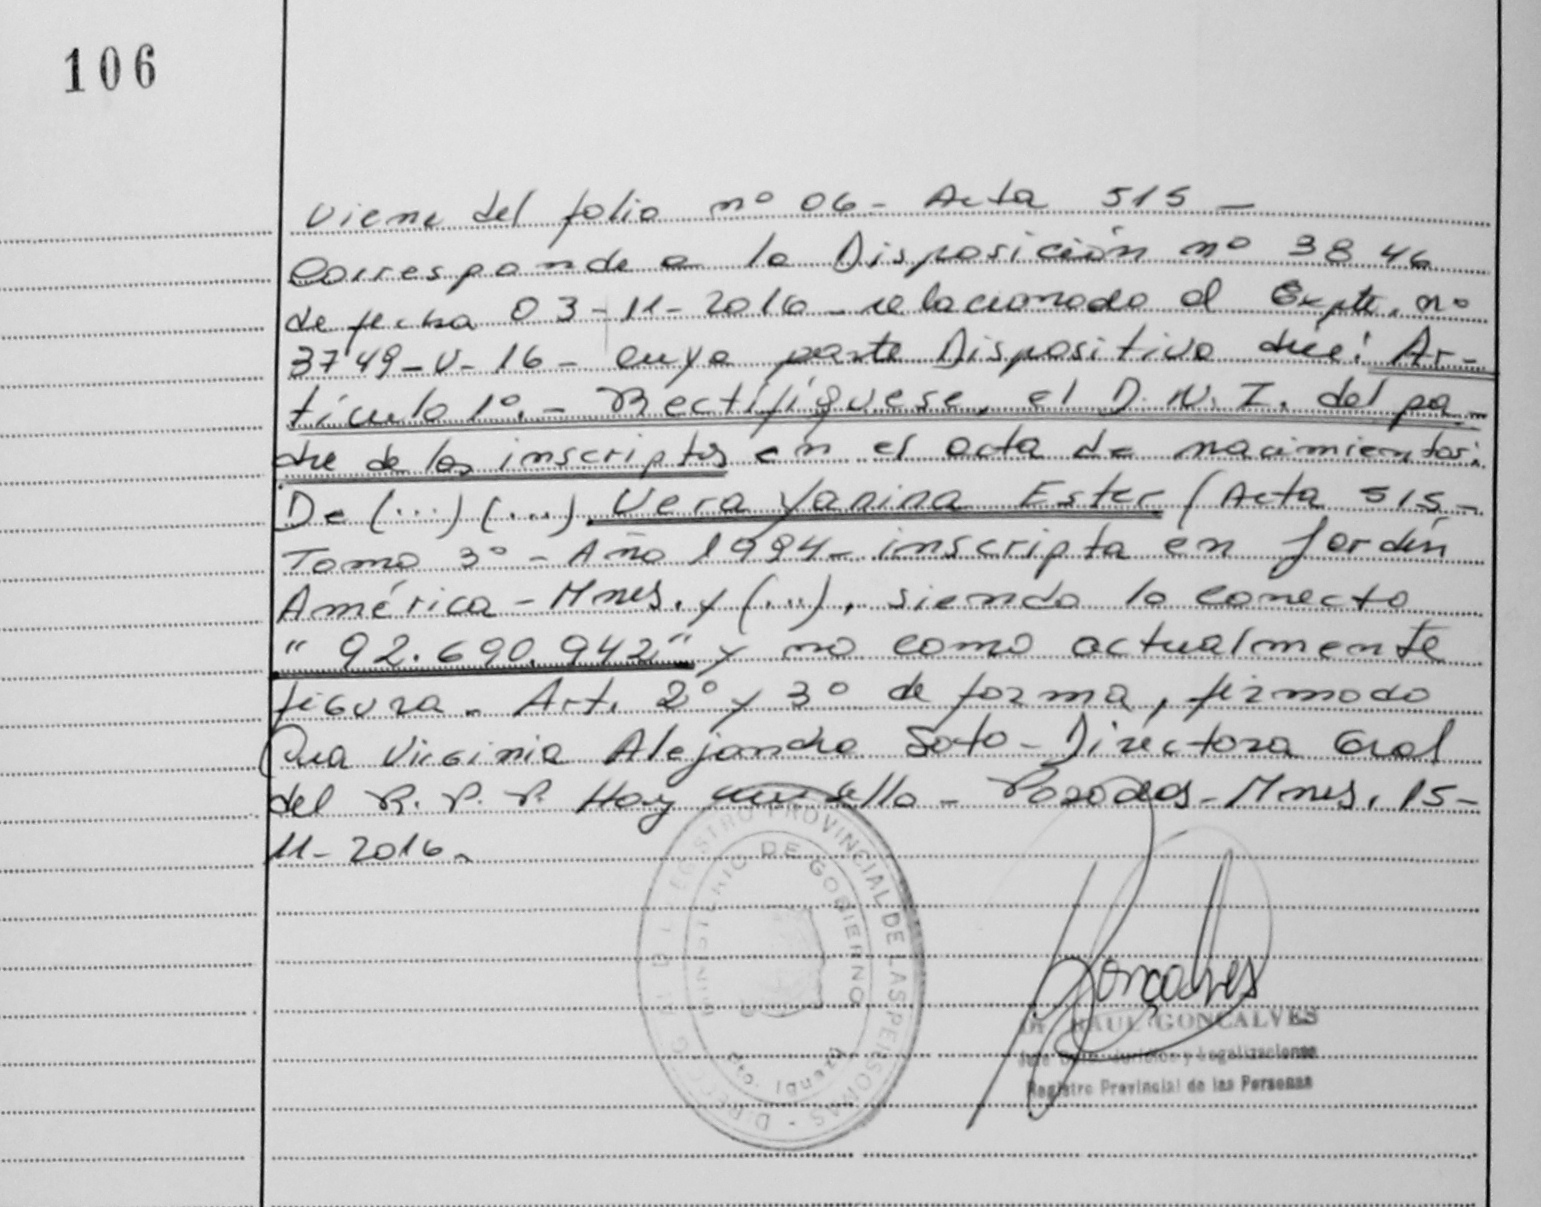 106
Viene del folio nº 06 - Acta 515 -
Corresponde a la Disposición nº 3846
de fecha 03-11-2016 - relacionado al Expte. nº
3749-V-16 - cuya parte Dispositiva dice: Ar-
tículo 1º. - Rectifíquese, el D.N.I. del pa-
dre de los inscriptos en el acta de nacimientos:
De (...) (...) Vera Yanina Ester (Acta 515-
Tomo 3º - Año 1994 - inscripta en Jardín
América - Mnes. y (...), siendo lo correcto
"92.690.942" y no como actualmente
figura. Art. 2º y 3º de forma, firmado
Dra Virginia Alejandra Soto - Directora Gral
del R.P.P. Hay un sello - Posadas - Mnes, 15-
11-2016.
REGISTRO PROVINCIAL DE LAS PERSONAS
MINISTERIO DE GOBIERNO
Goncalves
Dr. RAUL GONCALVES
Jurídico y Legalizaciones
Registro Provincial de las Personas